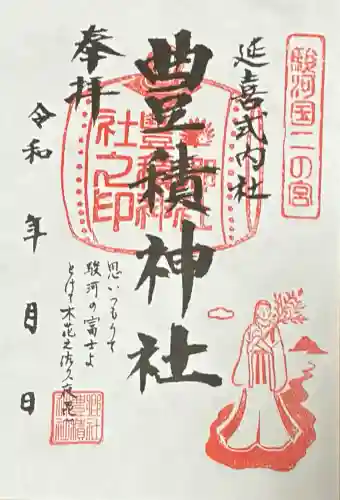 駿河国二の宮
延喜式内社
豊積神社
奉拝
令和 年 月 日
思いつもりて
駿河の富士よ
とけて木花之佐久夜毘
郷社
豊積
神社
之印